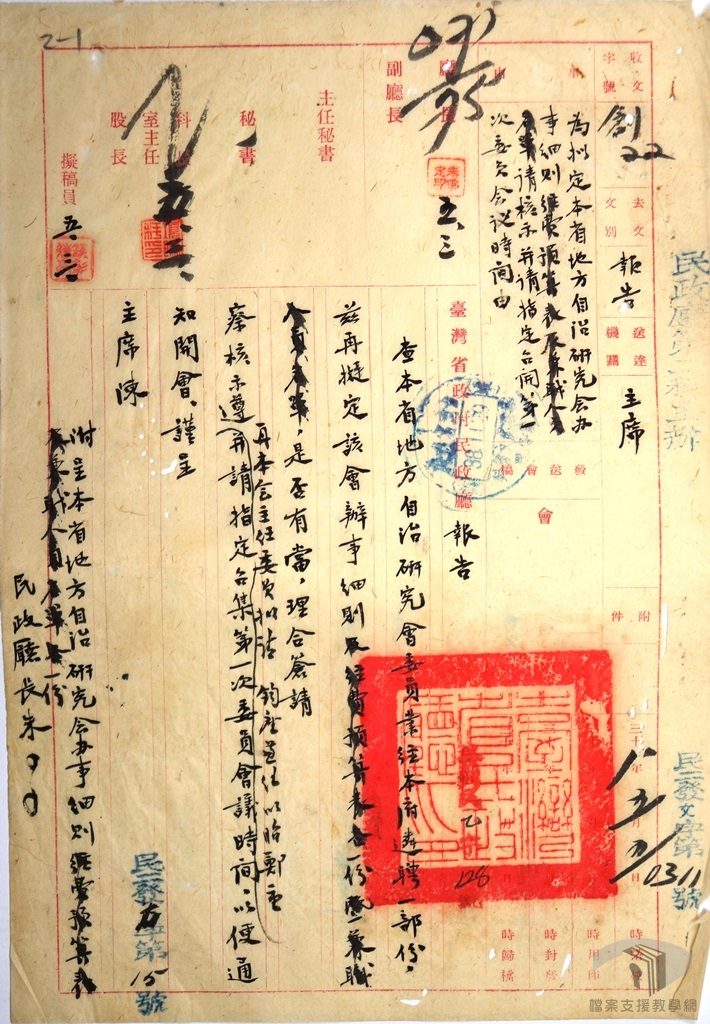 2-1
收文
字號
創
22
去文
文別
報告
送達
機關
主席
附件
為拟定本省地方自治研究会办
事細則經費預算表
請核示并請指定召開第一
次委員会议時間由
會
廳長
副廳長
主任秘書
秘書
科長
室主任
股長
擬稿員
五、三
五、三、
五、三
臺灣省政府民政廳
報告
查本省地方自治研究會委員業經本府遴聘一部份,
茲再擬定該會辦事細則及經費預算表各一份
是否有當,理合簽請
再本会主任委員拟請 鈞座兼任以昭鄭重
察核示遵并請指定召集第一次委員會議時間,以便通
知開會。謹呈
主席陳
附呈本省地方自治研究会办事細則經費預算表
一份
民政廳長朱
128
民一發文字第
0311
號
民一發
第
15
號
檔案支援教學網